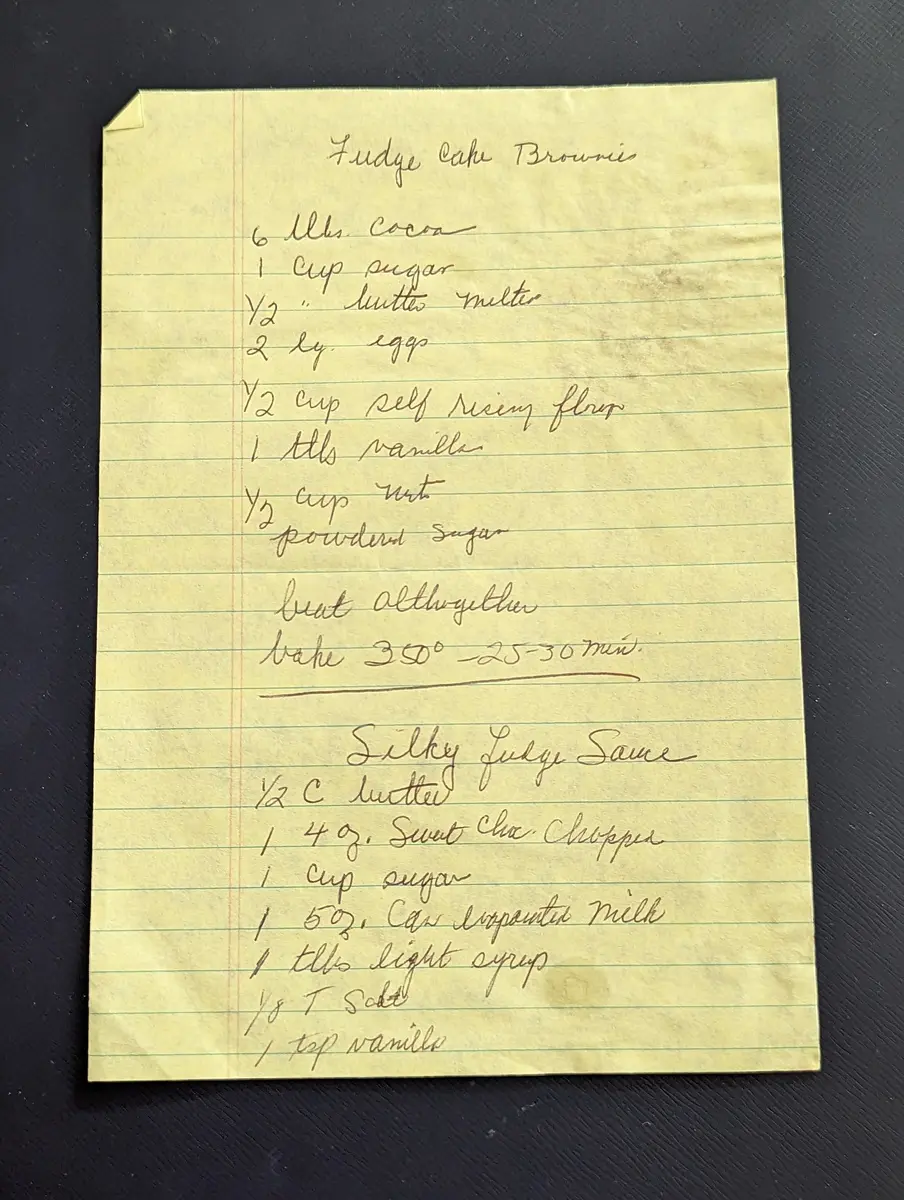 Fudge Cake Brownies
6 tlbs. cocoa
1 cup sugar
1/2 " butter melted
2 lg. eggs
1/2 cup self rising flour
1 tlbs vanilla
1/2 cup nuts
powdered sugar
beat althogether
bake 350° - 25-30 min.
Silky Fudge Sauce
1/2 C butter
1 4 oz. Sweet Choc. Chopped
1 cup sugar
1 5 oz. Can evaporated Milk
1 tlbs light syrup
1/8 T Salt
1 tsp vanilla